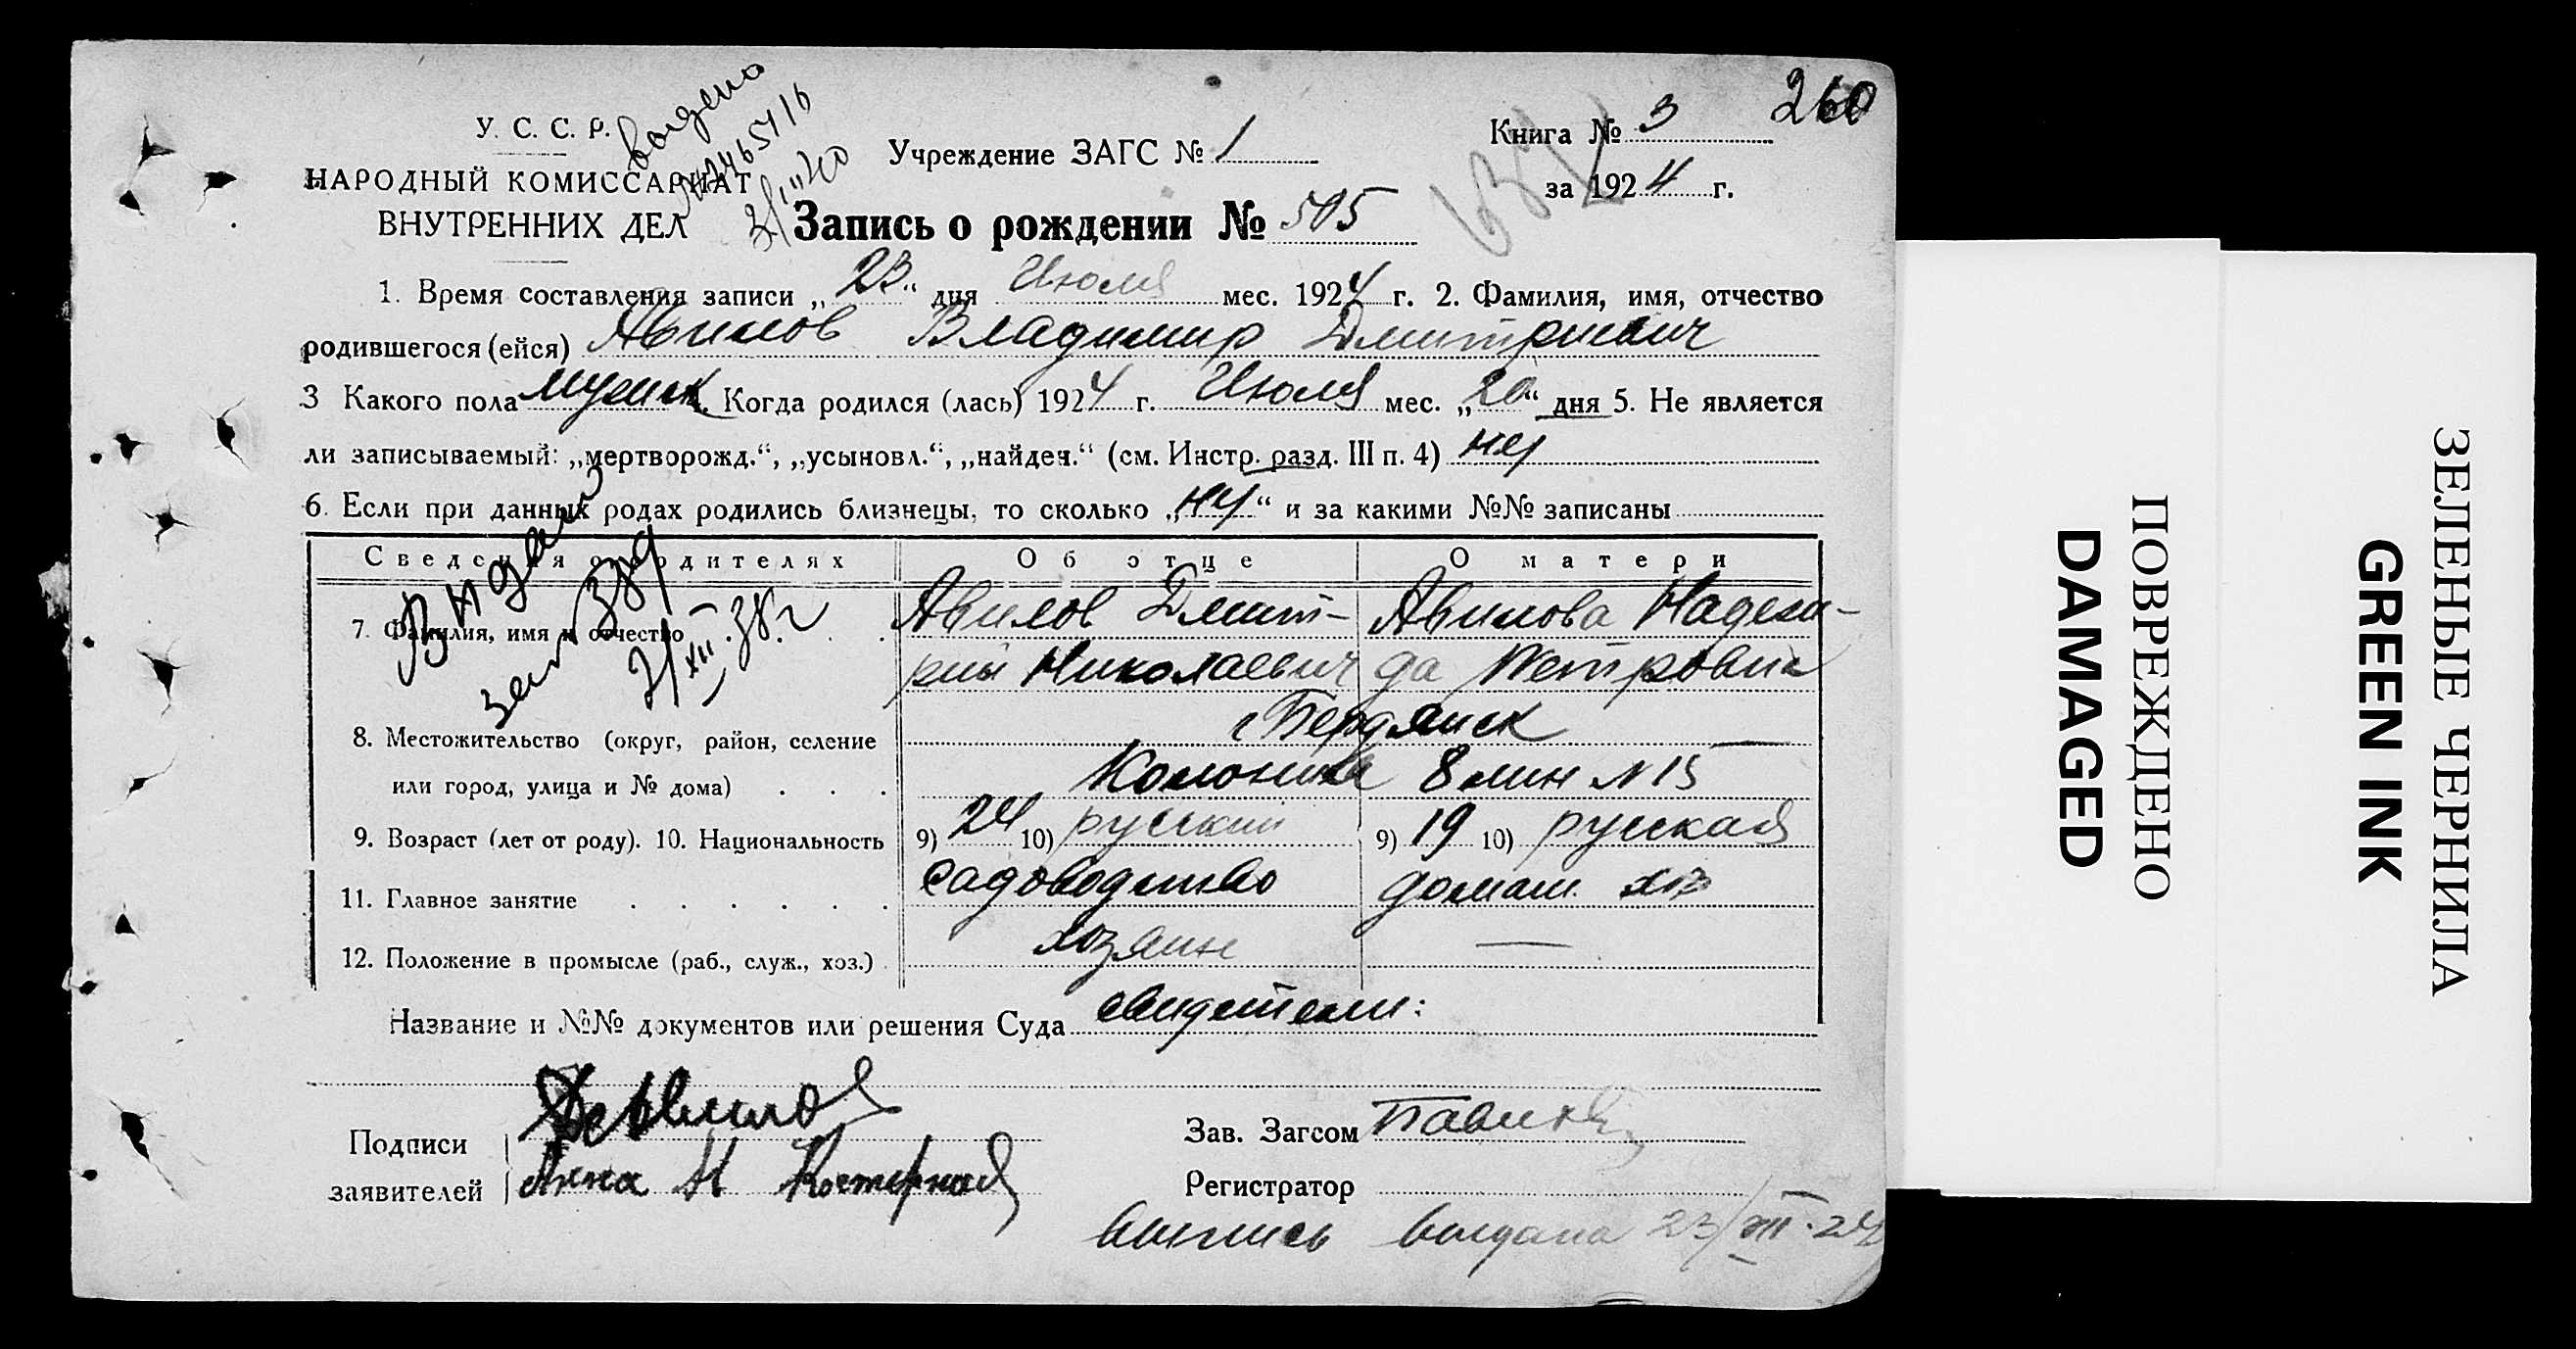 260
У. С. С. Р.
НАРОДНЫЙ КОМИССАРИАТ
ВНУТРЕННИХ ДЕЛ
Учреждение ЗАГС № 1
Книга № 3
за 1924 г.
Запись о рождении № 505
1. Время составления записи „23“ дня Июля мес. 1924 г. 2. Фамилия, имя, отчество
родившегося (ейся) Авилов Владимир Дмитриевич
3 Какого пола мужск. Когда родился (лась) 1924 г. Июля мес. „20“ дня 5. Не является
ли записываемый: „мертворожд.“, „усыновл.“, „найден.“ (см. Инстр. разд. III п. 4) нет
6. Если при данных родах родились близнецы, то сколько „нет“ и за какими №№ записаны
Сведения о родителях Об отце О матери
7. Фамилия, имя и отчество Авилов Дмит- Авилова Надеж-
рий Николаевич да Петровна
8. Местожительство (округ, район, селение г Бердянск
или город, улица и № дома) Колония 8 лин N 15
9. Возраст (лет от роду). 10. Национальность 9) 24 10) русский 9) 19 10) русская
11. Главное занятие садоводство домаш. хоз
12. Положение в промысле (раб., служ., хоз.) хозяин —
Название и №№ документов или решения Суда свидетели:
Подписи
заявителей Анна Н
Зав. Загсом
Регистратор
выпись выдана 23/VII-24
ПОВРЕЖДЕНО
DAMAGED
ЗЕЛЕНЫЕ ЧЕРНИЛА
GREEN INK